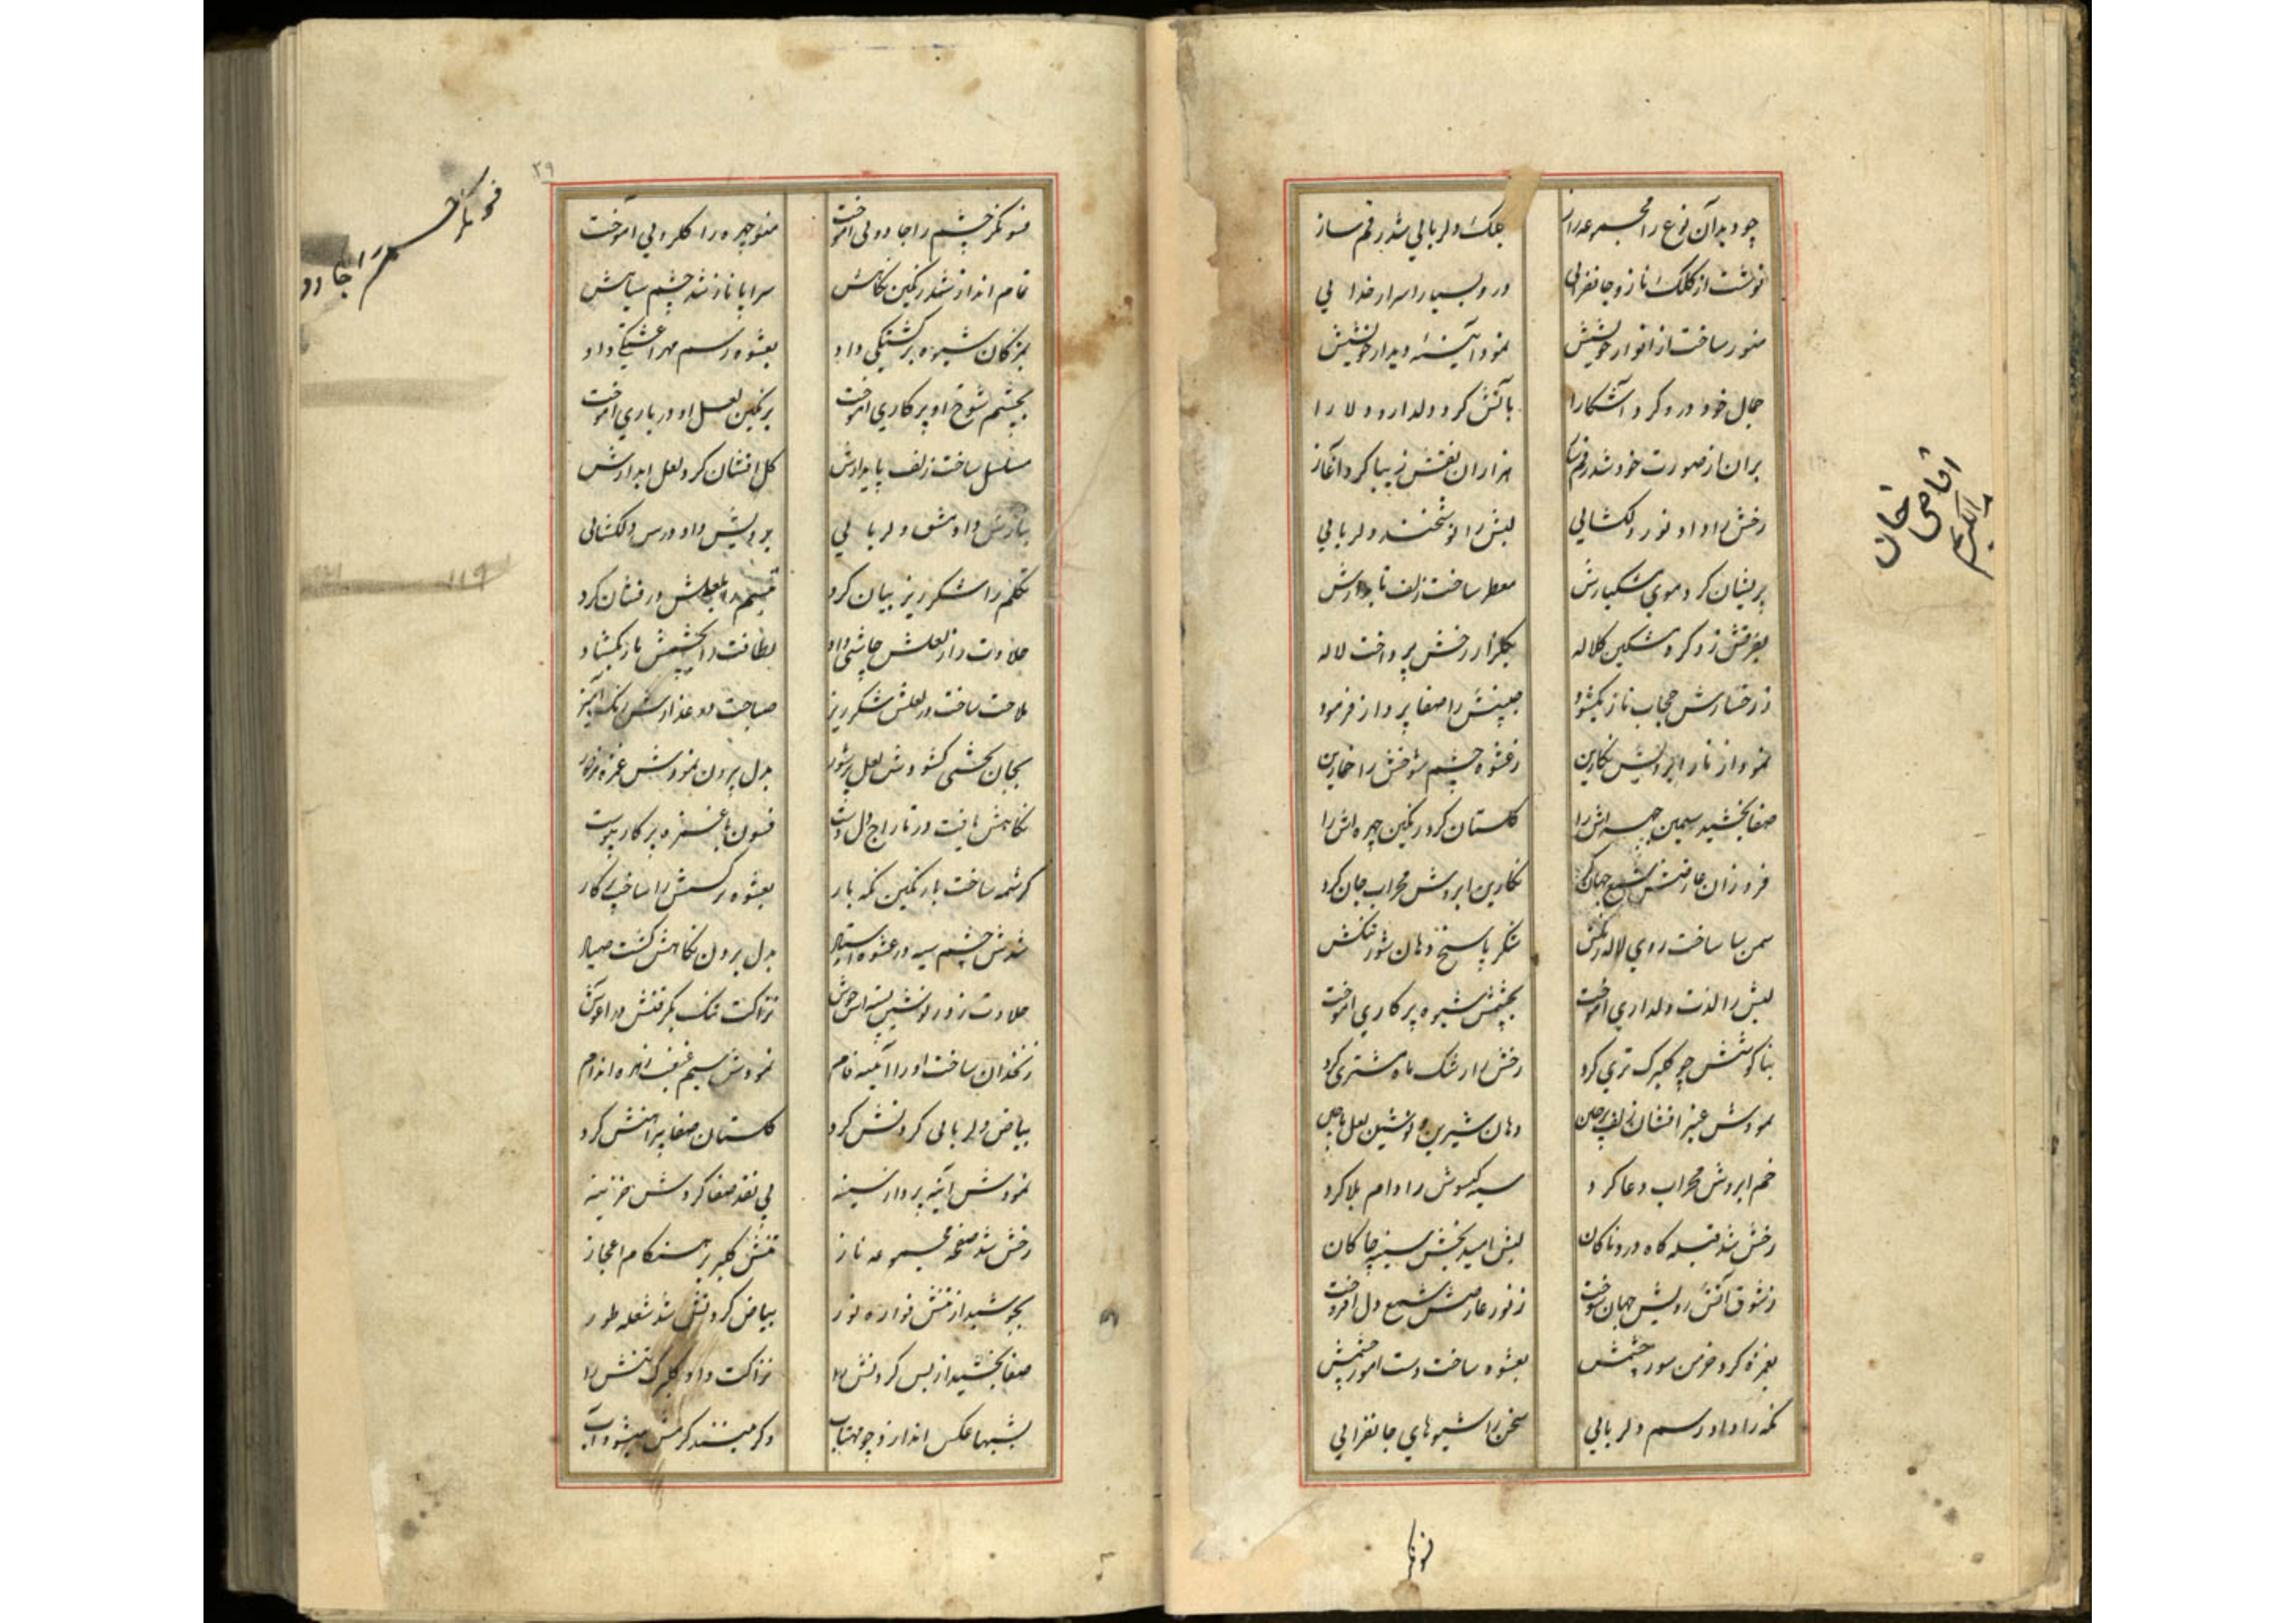 چو دید آن نوع را مجموعه راز بکلک دلربایی شد رقم ساز
نوشت از کلک ناز و جانفزایی درو بسیار اسرار خدایی
منور ساخت از انوار خویشش نمود آیینهٔ دیدار خویشش
جمال خود درو کرد آشکارا کرد دلدار و دلارا
بران از صورت خود شد رقم هزاران نقش زیبا کرد آغاز
رخش را داد نور دلکشایی لبش را دلربایی
پریشان کرد موی مشکبارش معطر ساخت زلف تابدارش
کرد مشکین کلاله بکلزار رخش پرداخت لاله
ز رخسارش حجاب ناز بکشود جبینش را صفا پرداز فرمود
نمود از ناز ابرویش نکارین ز عشوه چشم شوخش را خمارین
صفا بخشید سیمین جبهه اش را کلستان کرد رنکین چهره اش را
فروزان عارضش شمع جهان کرد نکارین ابروش محراب جان کرد
سمن سا ساخت روی لاله رنکش شکر پاسخ دهان شور تنکش
لبش را لذت دلداری آموخت بچشمش شیوه پرکاری آموخت
بناکوشش چو کلبرک تری کرد رخش را رشک ماه مشتری کرد
نمودش عنبر افشان زلف پرچین دهان شیرین و نوشین لعل
خم ابروش محراب دعا کرد سیه کیسوش را دام بلا کرد
رخش شد قبله کاه دردناکان لبش امید بخش سینه چاکان
ز شوق آتش رویش جهان سوخت ز نور عارضش شمع دل افروخت
بغمزه کرد چشمش بعشوه ساخت دست آموز چشمش
نکه را داد رسم دلربایی سخن را شیوهای جانفزایی
فسونکر
اقاجی خان
۲۹
فسونکر چشم را جادویی آموخت منوچهره را کلرویی آموخت
تمام انداز شد رنکین نکاهش سراپا ناز شد چشم سیاهش
بمژکان شیوه برکشتکی داد بعشوه رسم داد
بچشم شوخ او پرکاری آموخت برنکین لعل او درباری آموخت
مسلسل ساخت زلف کل افشان کرد لعل آبدارش
بنازش داد مشق دلربایی برویش داد درس دلکشایی
تکلم را شکرریز بیان کرد تبسم را بلعلش درفشان کرد
حلاوت را ز لعلش چاشنی داد لطافت را بچشمش بار بکشاد
ملاحت ساخت در لعلش شکرریز صباحت در عذارش رنک آمیز
بجان بخشی کشودش لعل پرشور بدل بردن نمودش غمزه
نکاهش یافت در تاراج دل دست فسون با غمزه پرکار پیوست
کرشمه ساخت با رنکین نکه یار بعشوه نرکسش را ساخت پرکار
شدش چشم سیه در عشوه استاد بدل بردن نکاهش کشت صیاد
حلاوت زد در نوشین پسته اش جوش نزاکت تنک بکرفتش در آغوش
زنخدان ساخت او را آیینه فام نمودش سیم غبغب زهره اندام
بیاض دلربایی کردنش کرد کلستان صفا پیراهنش کرد
نمودش آینه پرداز سینه پی نقد صفا کردش خزینه
رخش شد صفحه مجموعه ناز تنش کلبرک هنکام اعجاز
بجوشید از تنش فواره نور بیاض کردنش شد شعله طور
صفا بخشید از بس کردنش را نزاکت داد کلبرک تنش را
بشبها عکس اندازد چو مهتاب
فسونکر چشم را جادو
۱۱۹